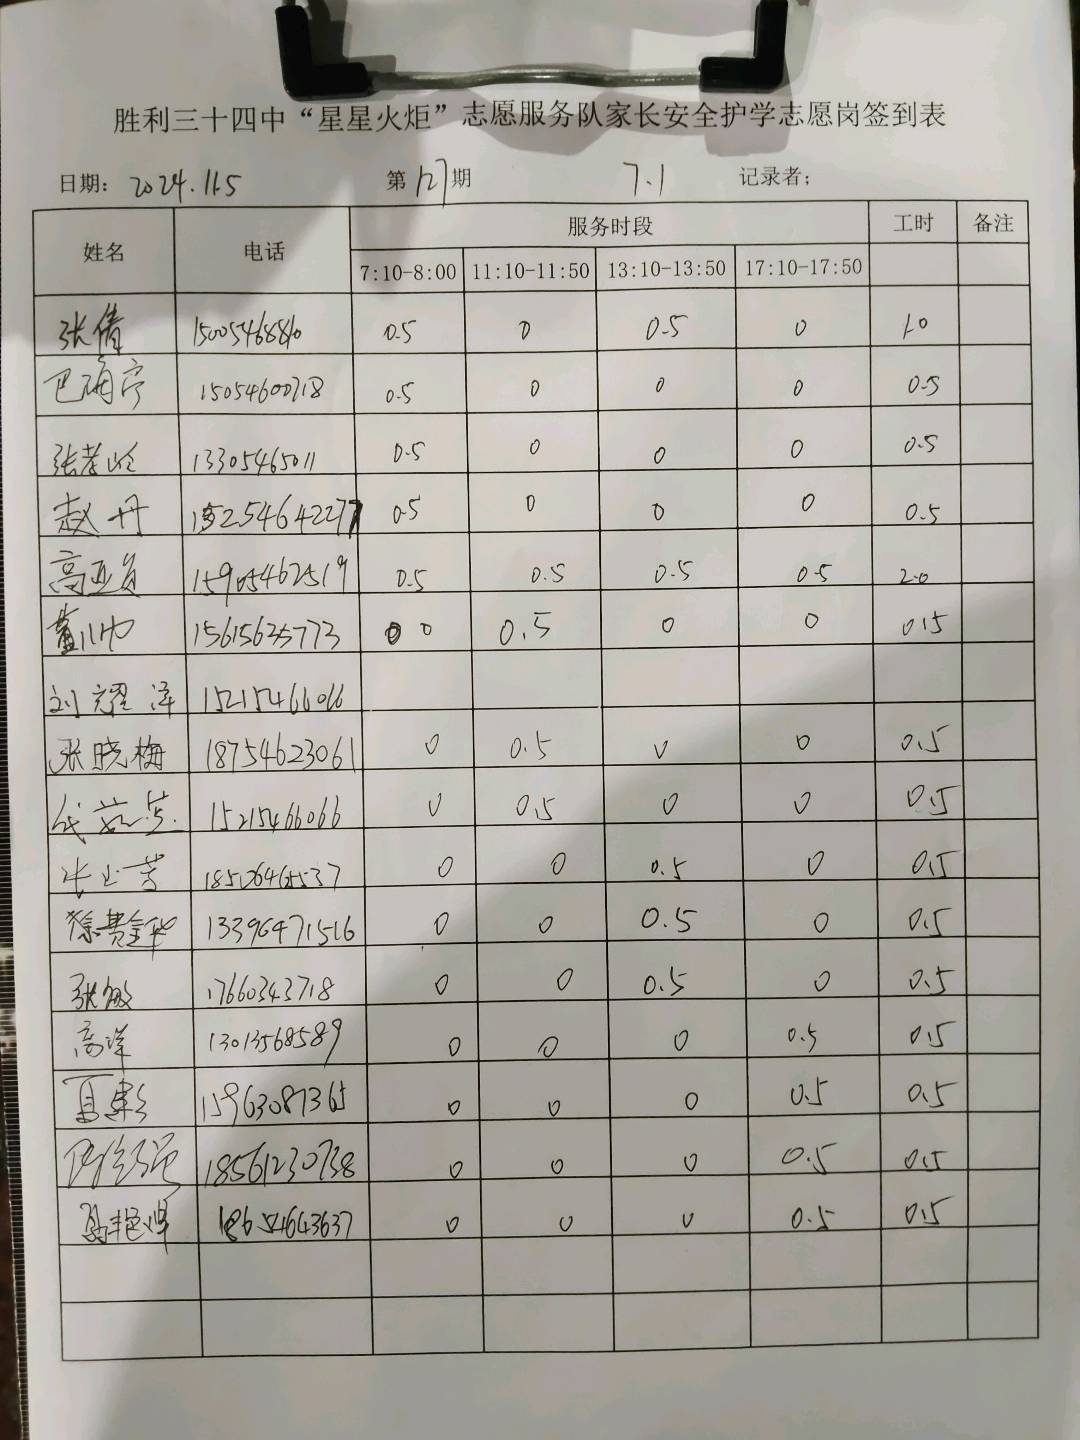 胜利三十四中“星星火炬”志愿服务队家长安全护学志愿岗签到表
日期: 2024.11.5 第127期 7.1 记录者;
姓名 电话 服务时段 工时 备注
7:10-8:00 11:10-11:50 13:10-13:50 17:10-17:50
张倩 15005468810 0.5 0 0.5 0 1.0
巴海宁 15054600718 0.5 0 0 0 0.5
张孝岭 13305465011 0.5 0 0 0 0.5
赵丹 15254642277 0.5 0 0 0 0.5
高亚 15905462519 0.5 0.5 0.5 0.5 2.0
董帅 15615635773 0 0 0.5 0 0 0.5
刘耀泽 15215466066
张晓梅 18754623061 0 0.5 0 0 0.5
15215466066 0 0.5 0 0 0.5
0 0 0.5 0 0.5
徐贵金华 13396471516 0 0 0.5 0 0.5
张敏 17660343718 0 0 0.5 0 0.5
高洋 13013568589 0 0 0 0.5 0.5
15963087365 0 0 0 0.5 0.5
18561230738 0 0 0 0.5 0.5
18654643637 0 0 0 0.5 0.5